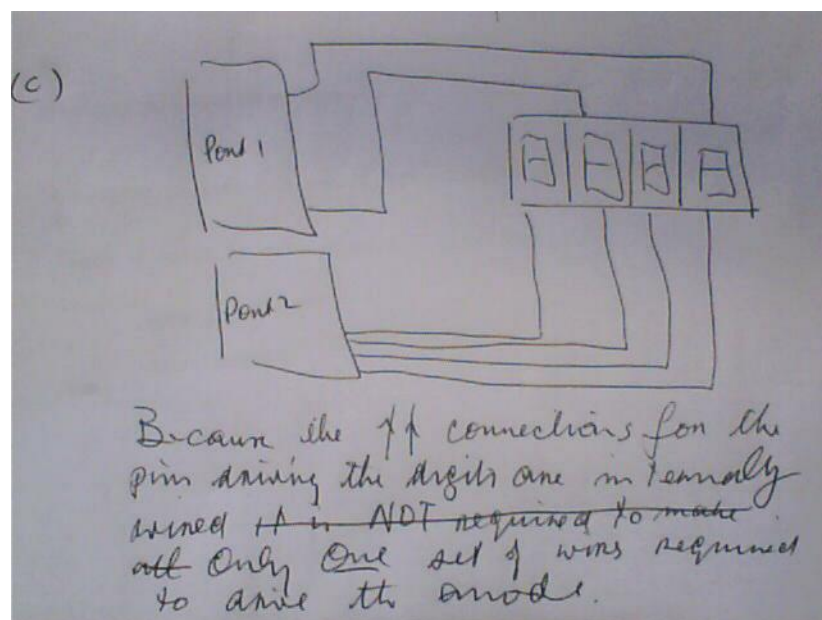 (c)
Port 1
Port 2
Because the connections for the
pins driving the digits are internally
wired it is NOT required to make
all Only One set of wires required
to drive the anode.